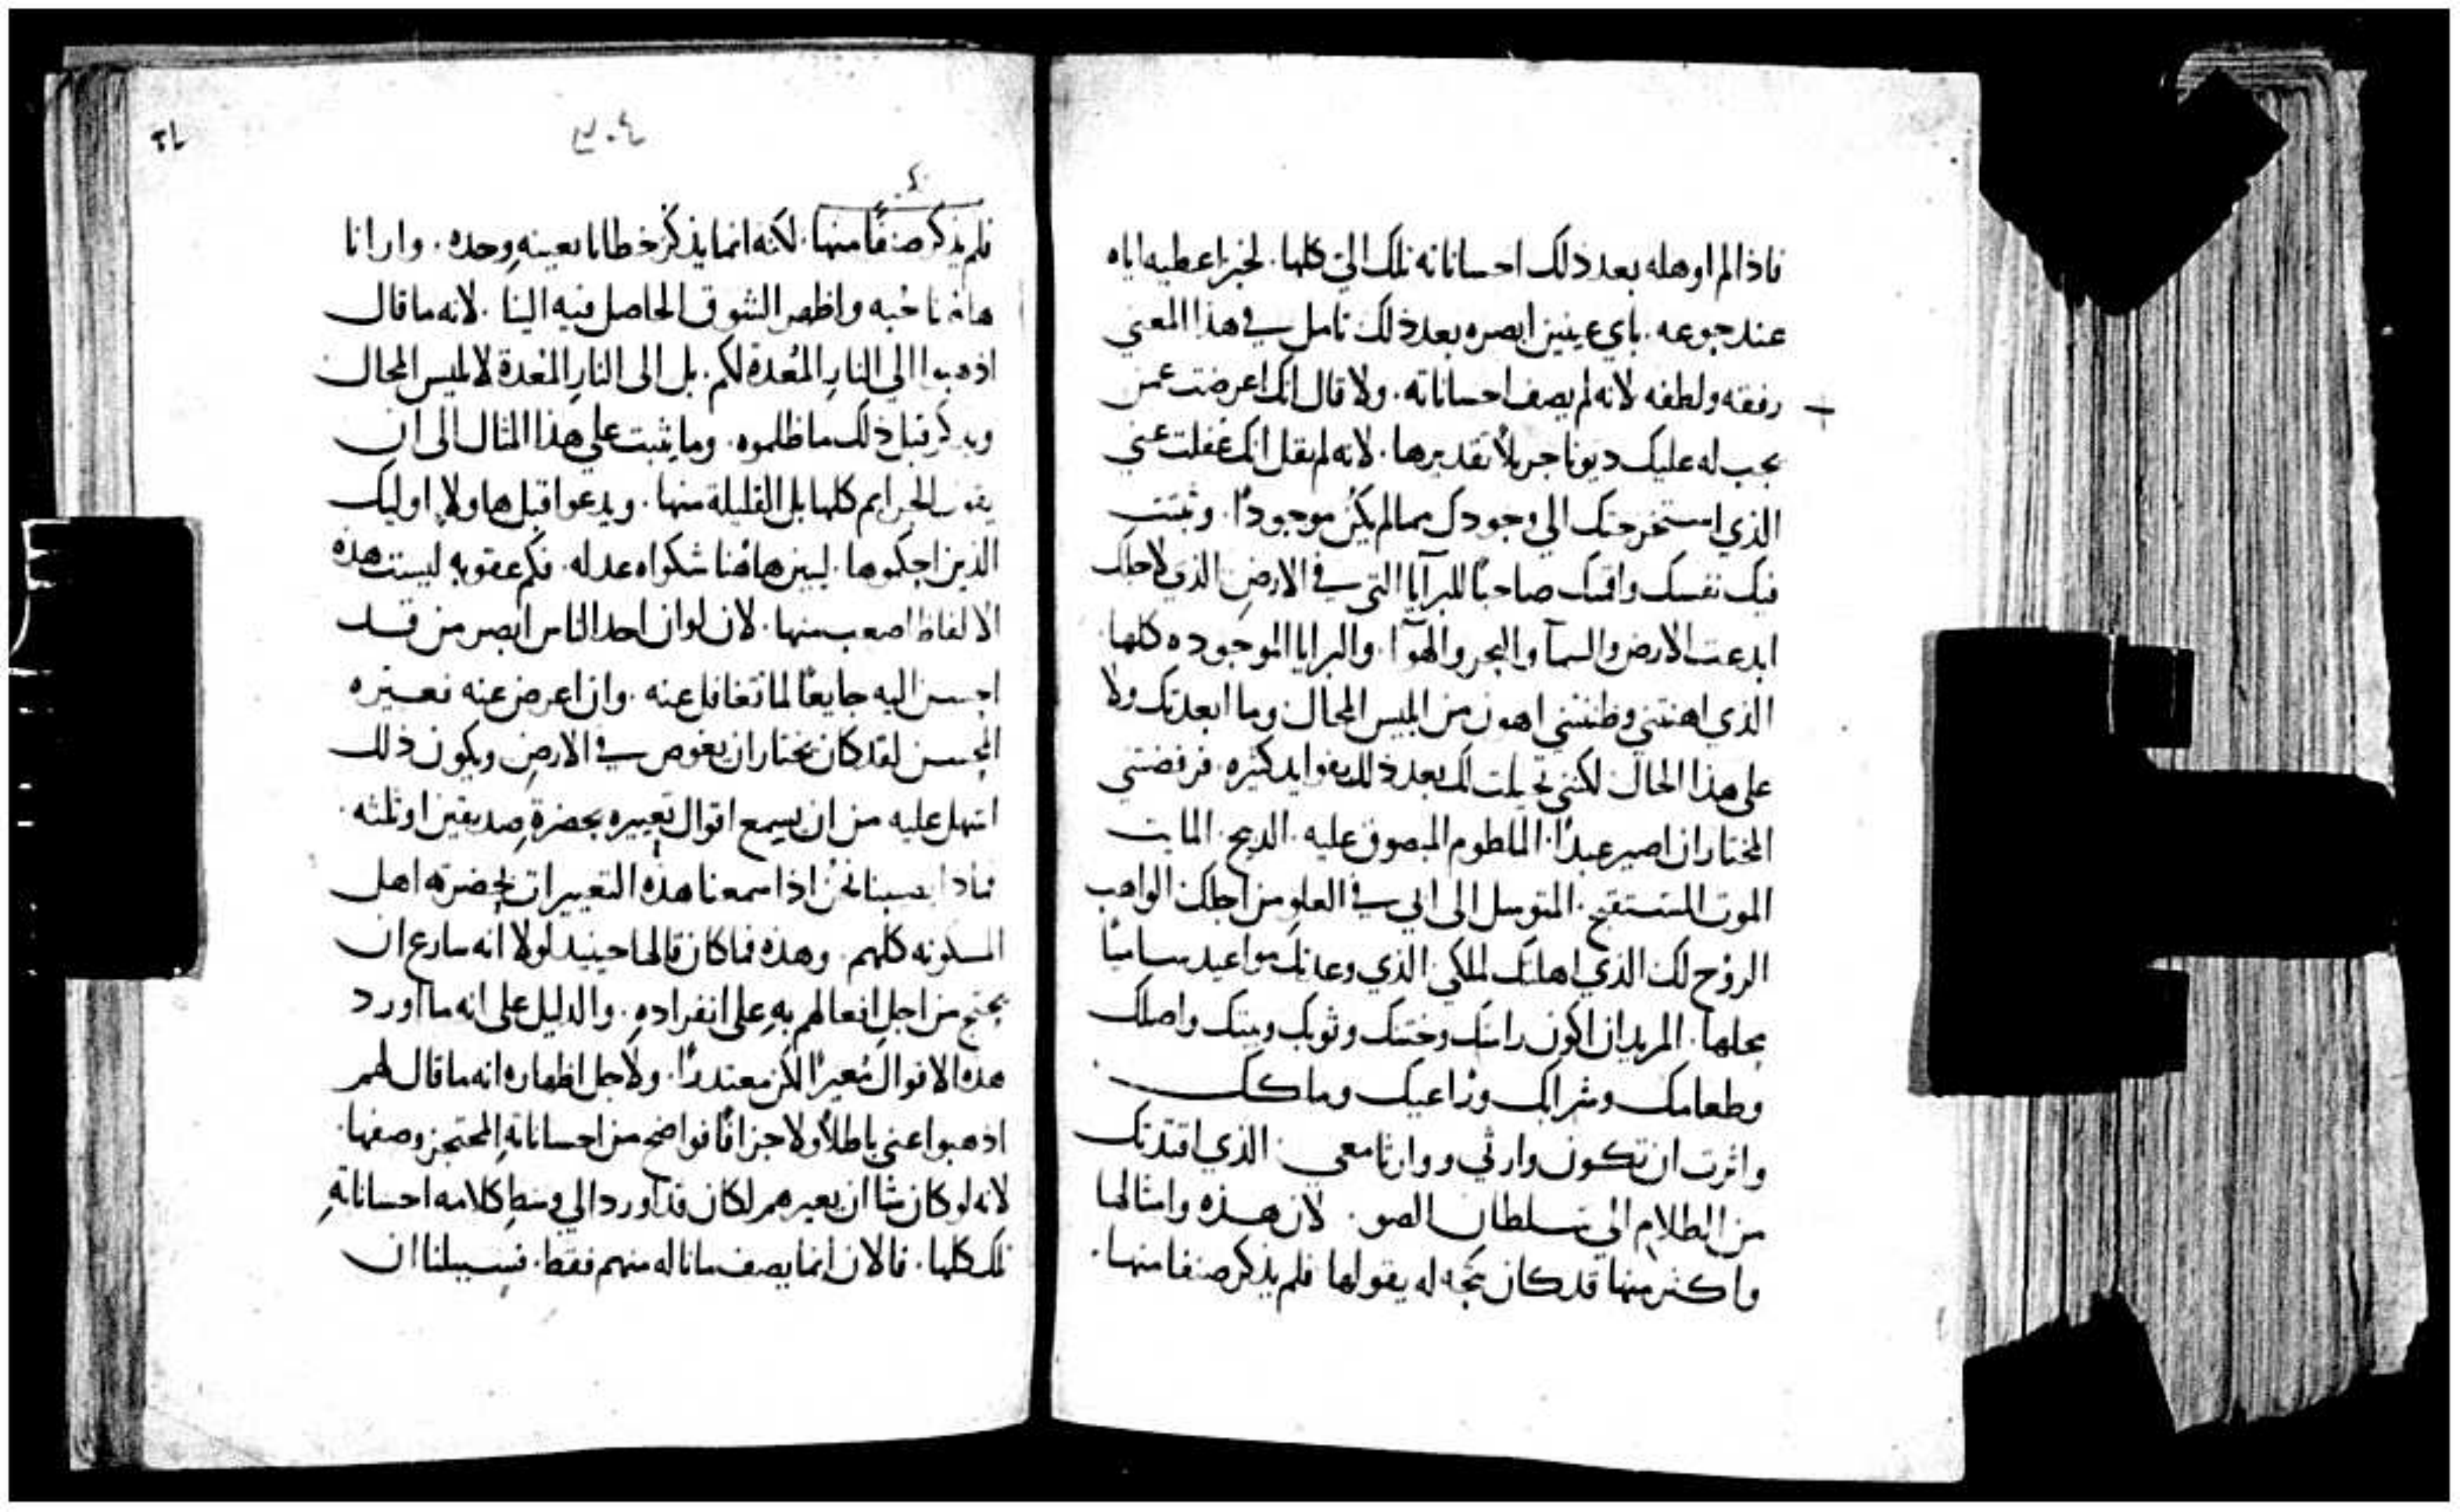 فاذا لم اوهله بعد ذلك احساناته تلك التي كلها. لخبز اعطيه اياه
عند جوعه. باي عينين ابصره بعد ذلك تامل في هذا المعني
رفقه ولطفه لانه لم يصف احساناته. ولا قال انك اعرضت عمن
يجب له عليك ديونا جزيلاً تقديرها. لانه لم يقل انك غفلت عني
الذي استخرجتك الي وجودك مما لم يكن موجودًا. وثبتت
فيك نفسك واقمتك صاحبًا للبرايا التي في الارض الذي لاجلك
ابدعت الارض والسمآ والبحر والهوآ. والبرايا الموجوده كلها
الذي اهنتني وظننتني اهون من ابليس المحال وما ابعدتك ولا
على هذا الحال لكنني تحيلت لك بعد ذلك بفوايد كثيره. فرفضتني
المختار ان اصير عبدًا. الملطوم المبصوق عليه. الذبيح. المايت
الموت المستقبح. المتوسل الى ابي في العلو من اجلك الواهب
الروح لك الذي اهلتك لملكي الذي وعدتك مواعيد ساميًا
محلها. المريد ان اكون راسك وختنك وثوبك وبيتك واصلك
وطعامك وشرابك وراعيك وملكك
واثرت ان تكون وارثي ووارثا معي الذي اقتدتك
من الظلام الي سلطان الضو. لان هذه وامثالها
واكثر منها قد كان يتجه له يقولها فلم يذكر صنفا منها.
٣٠٤
فلم يذكر صنفًا منها. لكنه انما يذكر خطايا بعينه وحده. وارانا
هاهنا حبه واظهر الشوق الحاصل فيه الينا. لانه ما قال
اذهبوا الي النار المُعدة لكم. بل الى النار المُعدة لابليس المحال
ويذكر قبل ذلك ما ظلموه. وما يثبت علي هذا المثال الى ان
يقول الجرايم كلها بل القليلة منها. ويدعوا قبل هاولا اوليك
الذين احكموها. ليبين هاهُنا شكواه عدله. فكم عقوبه ليست هذه
الالفاظ اصعب منها. لان لو ان احد الناس ابصر من قد
احسن اليه جايعًا لما تغافل عنه. وان اعرض عنه فعيره
المحسن لقد كان يختار ان يغوص في الارض ويكون ذلك
اسهل عليه من ان يسمع اقوال تعييره بحضرة صديقين او ثلثه.
فماذا يصيبنا نحن اذا سمعنا هذه التعييرات بحضرة اهل
المسكونه كلهم. وهذه فما كان قالها حينيد لولا انه سارع ان
يحتج من اجل افعالهم به على انفراده. والدليل على انه ما اورد
هذه الاقوال مُعيرًا لكن معتدرًا. ولاجل اظهاره انه ما قال لهم
اذهبوا عني باطلاً ولا جزافًا فواضح من احساناته المحتجز وصفها.
لانه لو كان شا ان يعيرهم لكان قد اورد الي وسط كلامه احساناته
تلك كلها. فالان انما يصف ما ناله منهم فقط. فسبيلنا ان